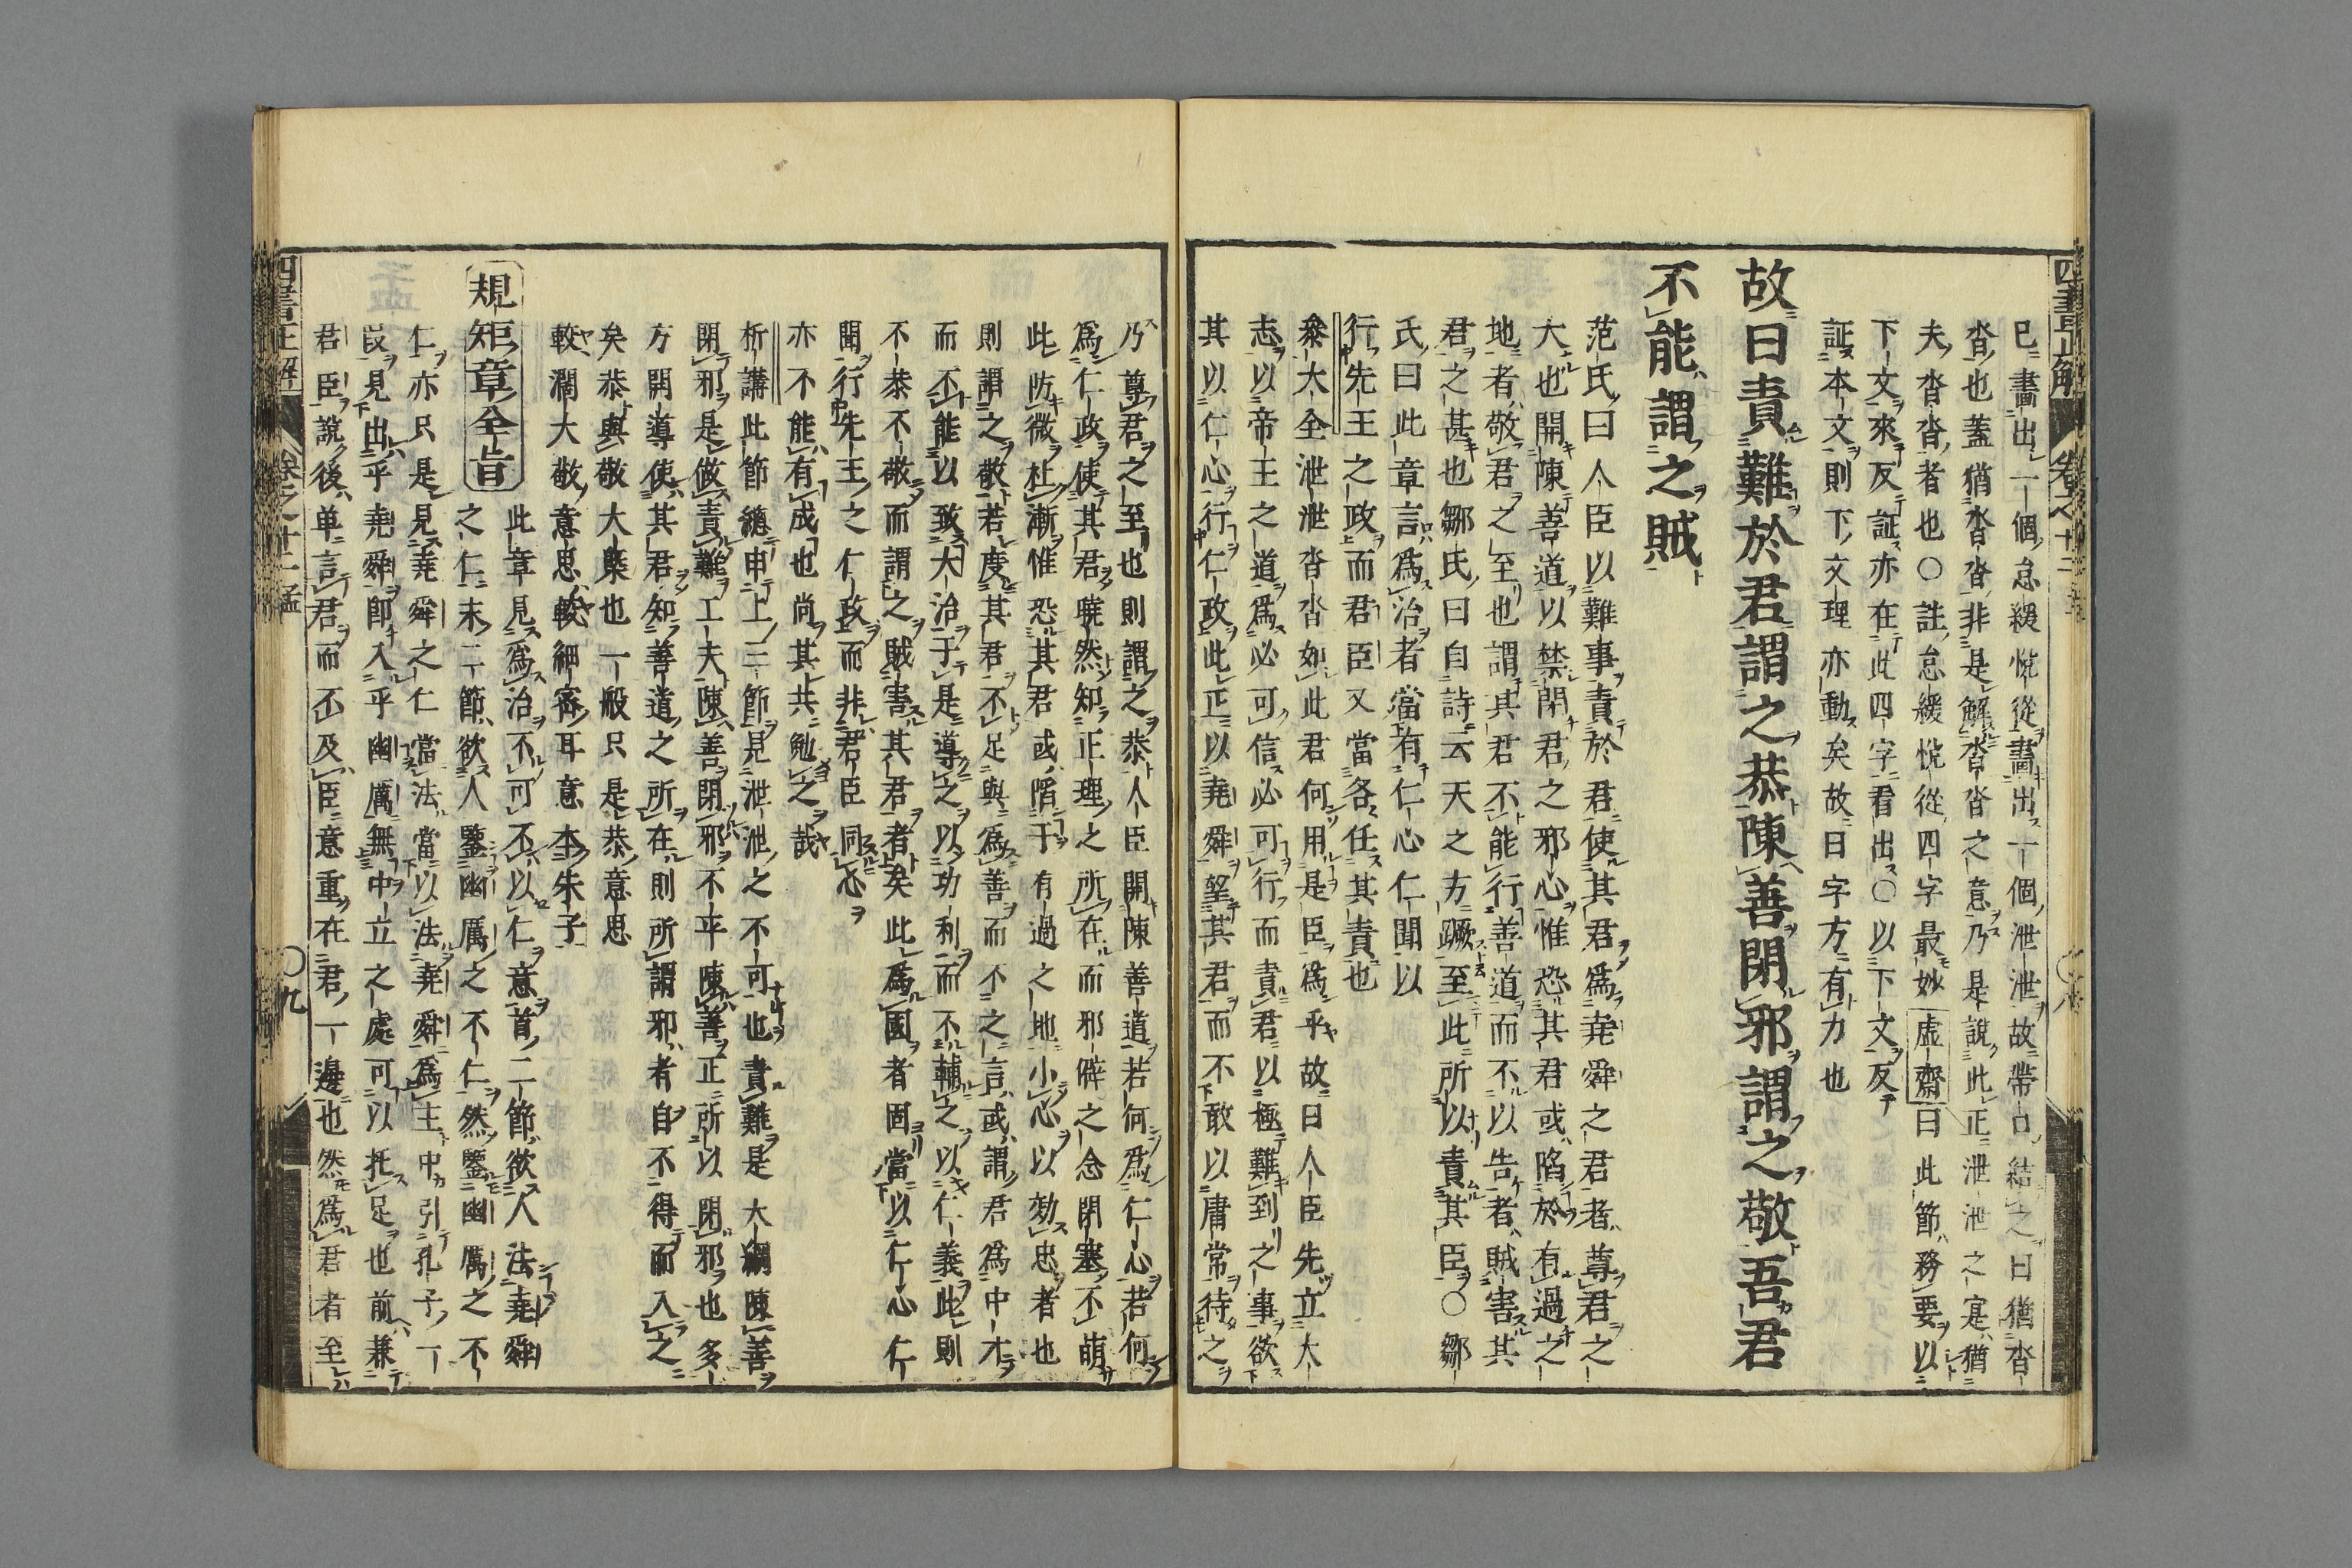 四書正解
卷之十二 孟
已畫出一個怠緩悅從畫出一個泄泄故帶口結之曰猶沓
沓也蓋猶沓沓非是解沓沓之意乃是說此正泄泄之寔猶
夫沓沓者也○註怠緩悅從四字最妙虛齋曰此節務要以
下文來反証亦在此四字看出○以下文反
証本文則下文理亦動矣故曰字方有力也
故曰責難於君謂之恭陳善閉邪謂之敬吾君
不能謂之賊
范氏曰人臣以難事責於君使其君爲堯舜之君者尊君之
大也開陳善道以禁閉君之邪心惟恐其君或陷於有過之
地者敬君之至也謂其君不能行善道而不以告者賊害其
君之甚也鄒氏曰自詩云天之方蹶至此所以責其臣○鄒
氏曰此章言爲治者當有仁心仁聞以
行先王之政而君臣又當各任其責也
叅大全泄泄沓沓如此君何用是臣爲乎故曰人臣先立大
志以帝王之道爲必可信必可行而責君以極難到之事欲
其以仁心行仁政此正以堯舜望其君而不敢以庸常待之
乃尊君之至也則謂之恭人臣開陳善道若何爲仁心若何
爲仁政使其君曉然知正理之所在而邪僻之念閉塞不萌
此防微杜漸惟恐其君或陷于有過之地小心以効忠者也
則謂之敬若度其君不足與爲善而不之言或謂君爲中才
而不能以致大治于是導之以功利而不輔之以仁義此則
不恭不敬而謂之賊害其君者矣此爲國者固當以仁心仁
聞行先王之仁政而非君臣同心
亦不能有成也尚其共勉之哉
析講此節總申上三節見泄泄之不可也責難是大綱陳善
閉邪是做責難工夫陳善閉邪不平陳善正所以閉邪也多
方開導使其君知善道之所在則所謂邪者自不得而入之
矣恭與敬大槩也一般只是恭意思
較濶大敬意思較細密耳意本朱子
規矩章全旨
此章見爲治不可不以仁意首二節欲人法堯舜
之仁末二節欲人鑒幽厲之不仁然鑒幽厲之不
仁亦只是見堯舜之仁當法當以法堯舜爲主中引孔子一
段見出乎堯舜卽入乎幽厲無中立之處可以托足也前兼
君臣說後单言君而不及臣意重在君一邊也然爲君者至
四書正解
卷之十二 孟
九